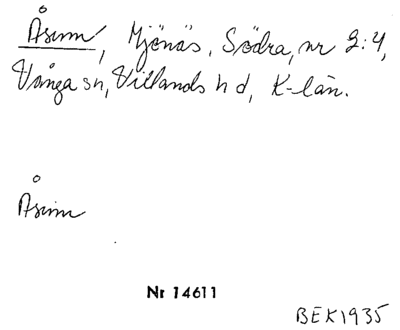 Åsum, Mjönäs, Södra, nr 2:4,
Vånga sn, Villands hd, K-län.
Åsum
Nr 14611
BEK1935